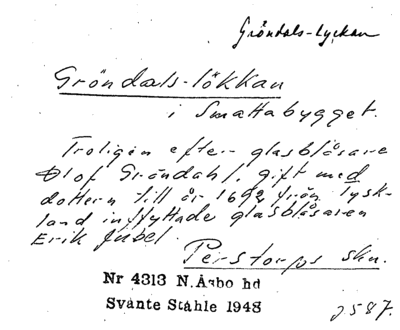 Gröndals-lyckan
Gröndals-lökkan
i Smattabygget.
Troligen efter glasblåsare
Olof Gröndahl, gift med
dottern till år 1692 från Tysk-
land inflyttade glasblåsaren
Erik Jubel.
Perstorps skn.
Nr 4313 N.Åsbo hd
Svante Ståhle 1948
2587.